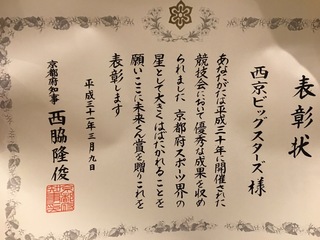 表彰状
西京ビッグスターズ 様
あなたがたは平成三十年に開催された
競技会において優秀な成果を収め
られました 京都府スポーツ界の
星として大きくはばたかれることを
願いここに未来くん賞を贈りこれを
表彰します
平成三十一年三月九日
京都府知事 西脇隆俊